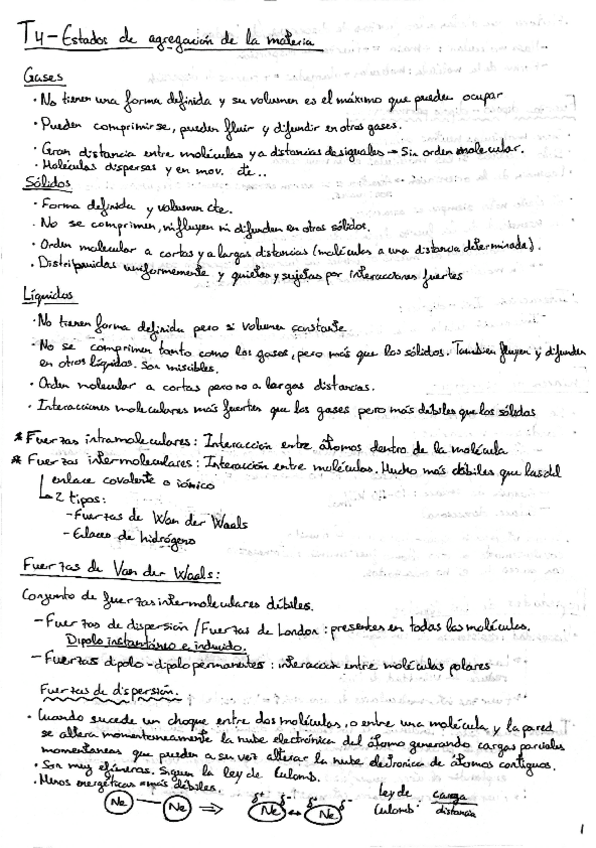 T4 - Estados de agregación de la materia
Gases
· No tienen una forma definida y su volumen es el máximo que pueden ocupar
· Pueden comprimirse, pueden fluir y difundir en otros gases.
· Gran distancia entre moléculas y a distancias desiguales → Sin orden molecular.
· Moléculas dispersas y en mov. cte..
Sólidos
· Forma definida y volumen cte.
· No se comprimen, ni fluyen ni difunden en otros sólidos.
· Orden molecular a cortas y a largas distancias (moléculas a una distancia determinada).
· Distribuidas uniformemente y quietas y sujetas por interacciones fuertes
Líquidos
· No tienen forma definida pero si volumen constante
· No se comprimen tanto como los gases, pero más que los sólidos. Tambien fluyen y difunden
en otros líquidos. Son miscibles.
· Orden molecular a cortas pero no a largas distancias.
· Interacciones moleculares más fuertes que los gases pero más débiles que los sólidos
* Fuerzas intramoleculares: Interacción entre átomos dentro de la molécula
* Fuerzas intermoleculares: Interacción entre moléculas. Mucho más débiles que las del
enlace covalente o iónico
↳ 2 tipos:
- Fuerzas de Van der Waals
- Enlaces de hidrógeno
Fuerzas de Van der Waals:
Conjunto de fuerzas intermoleculares débiles.
- Fuerzas de dispersión / Fuerzas de London: presentes en todas las moléculas.
Dipolo instantáneo e inducido.
- Fuerzas dipolo-dipolo permanentes: interacción entre moléculas polares
Fuerzas de dispersión:
· Cuando sucede un choque entre dos moléculas, o entre una molécula y la pared
se altera momentaneamente la nube electrónica del átomo generando cargas parciales
momentaneas que pueden a su vez alterar la nube electronica de átomos contiguos.
· Son muy efímeras. Siguen la ley de Culomb.
· Menos energéticas más débiles.
Ne — Ne ⇒ δ+ Ne δ- ↔ δ+ Ne δ- Ley de Culomb: carga / distancia
1